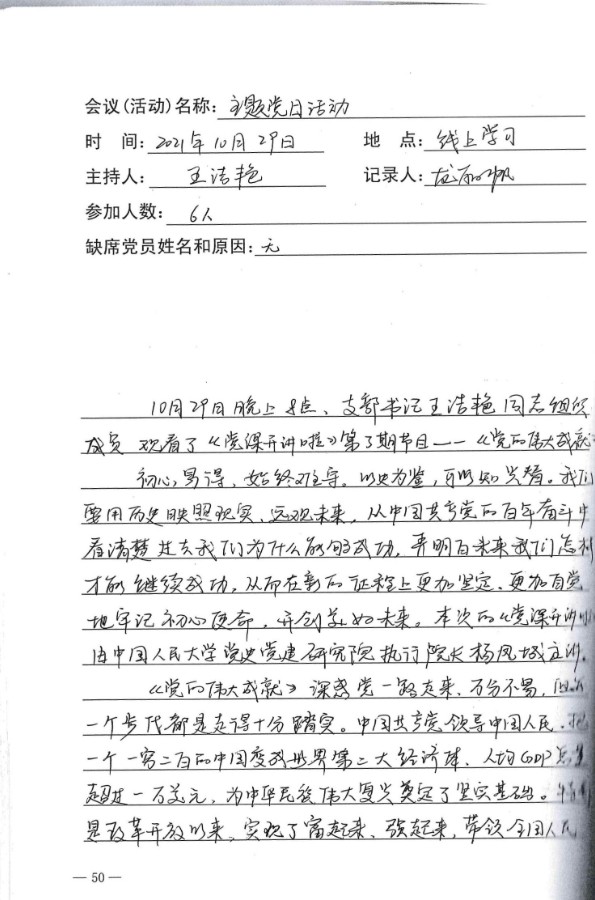 会议(活动)名称: 主题党日活动
时 间: 2021年10月29日 地 点: 线上学习
主持人: 王洁艳 记录人:
参加人数: 6人
缺席党员姓名和原因: 无
10月29日晚上8点、支部书记王浩艳同志组织
成员观看了《党课开讲啦》第7期节目——《党的伟大成就
初心易得,始终难守。以史为鉴,可以知兴替。我们
要用历史映照现实、远观未来,从中国共产党的百年奋斗中
看清楚过去我们为什么能够成功,弄明白未来我们怎样
才能继续成功,从而在新的征程上更加坚定、更加自觉
地牢记初心使命,开创美好未来。本次的《党课开讲啦
由中国人民大学党史党建研究院执行院长杨凤城主讲。
《党的伟大成就》深感党一路走来、万分不易,但
一个步伐都是走得十分踏实。中国共产党领导中国人民、把
一个一穷二白的中国变成世界第二大经济体、人均GDP
超过一万美元,为中华民族伟大复兴奠定了坚实基础。
是改革开放以来、实现了富起来、强起来,带领全国人民
— 50 —